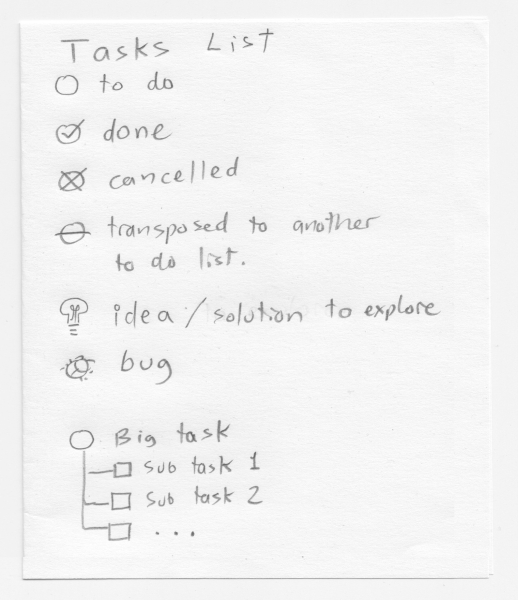 Tasks List
to do
done
cancelled
transposed to another
to do list.
idea/solution to explore
bug
Big task
Sub task 1
Sub task 2
...